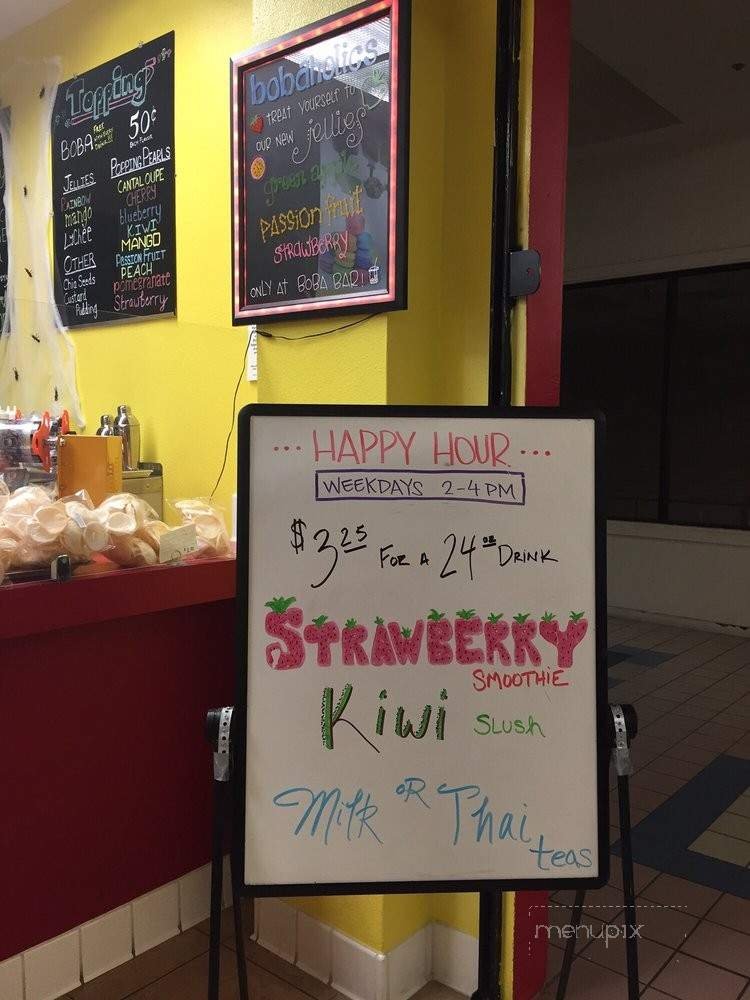 Topping
BOBA FREE WITH EVERY DRINK!!
50¢
EACH FLAVOR
JELLIES
RAINBOW
mango
Lychee
OTHER
Chia Seeds
Custard
Pudding
POPPING PEARLS
CANTALOUPE
CHERRY
blueberry
KIWI
MANGO
PASSION FRUIT
PEACH
pomegranate
Strawberry
bobaholics
TREAT YOURSELF TO
OUR NEW jellies
green apple
PASSION fruit
STRAWBERRY
ONLY AT BOBA BAR!
... HAPPY HOUR ...
WEEKDAYS 2-4 PM
$3.25 FOR A 24 oz DRINK
STRAWBERRY
SMOOTHIE
Kiwi SLUSH
Milk OR Thai
teas
menupix